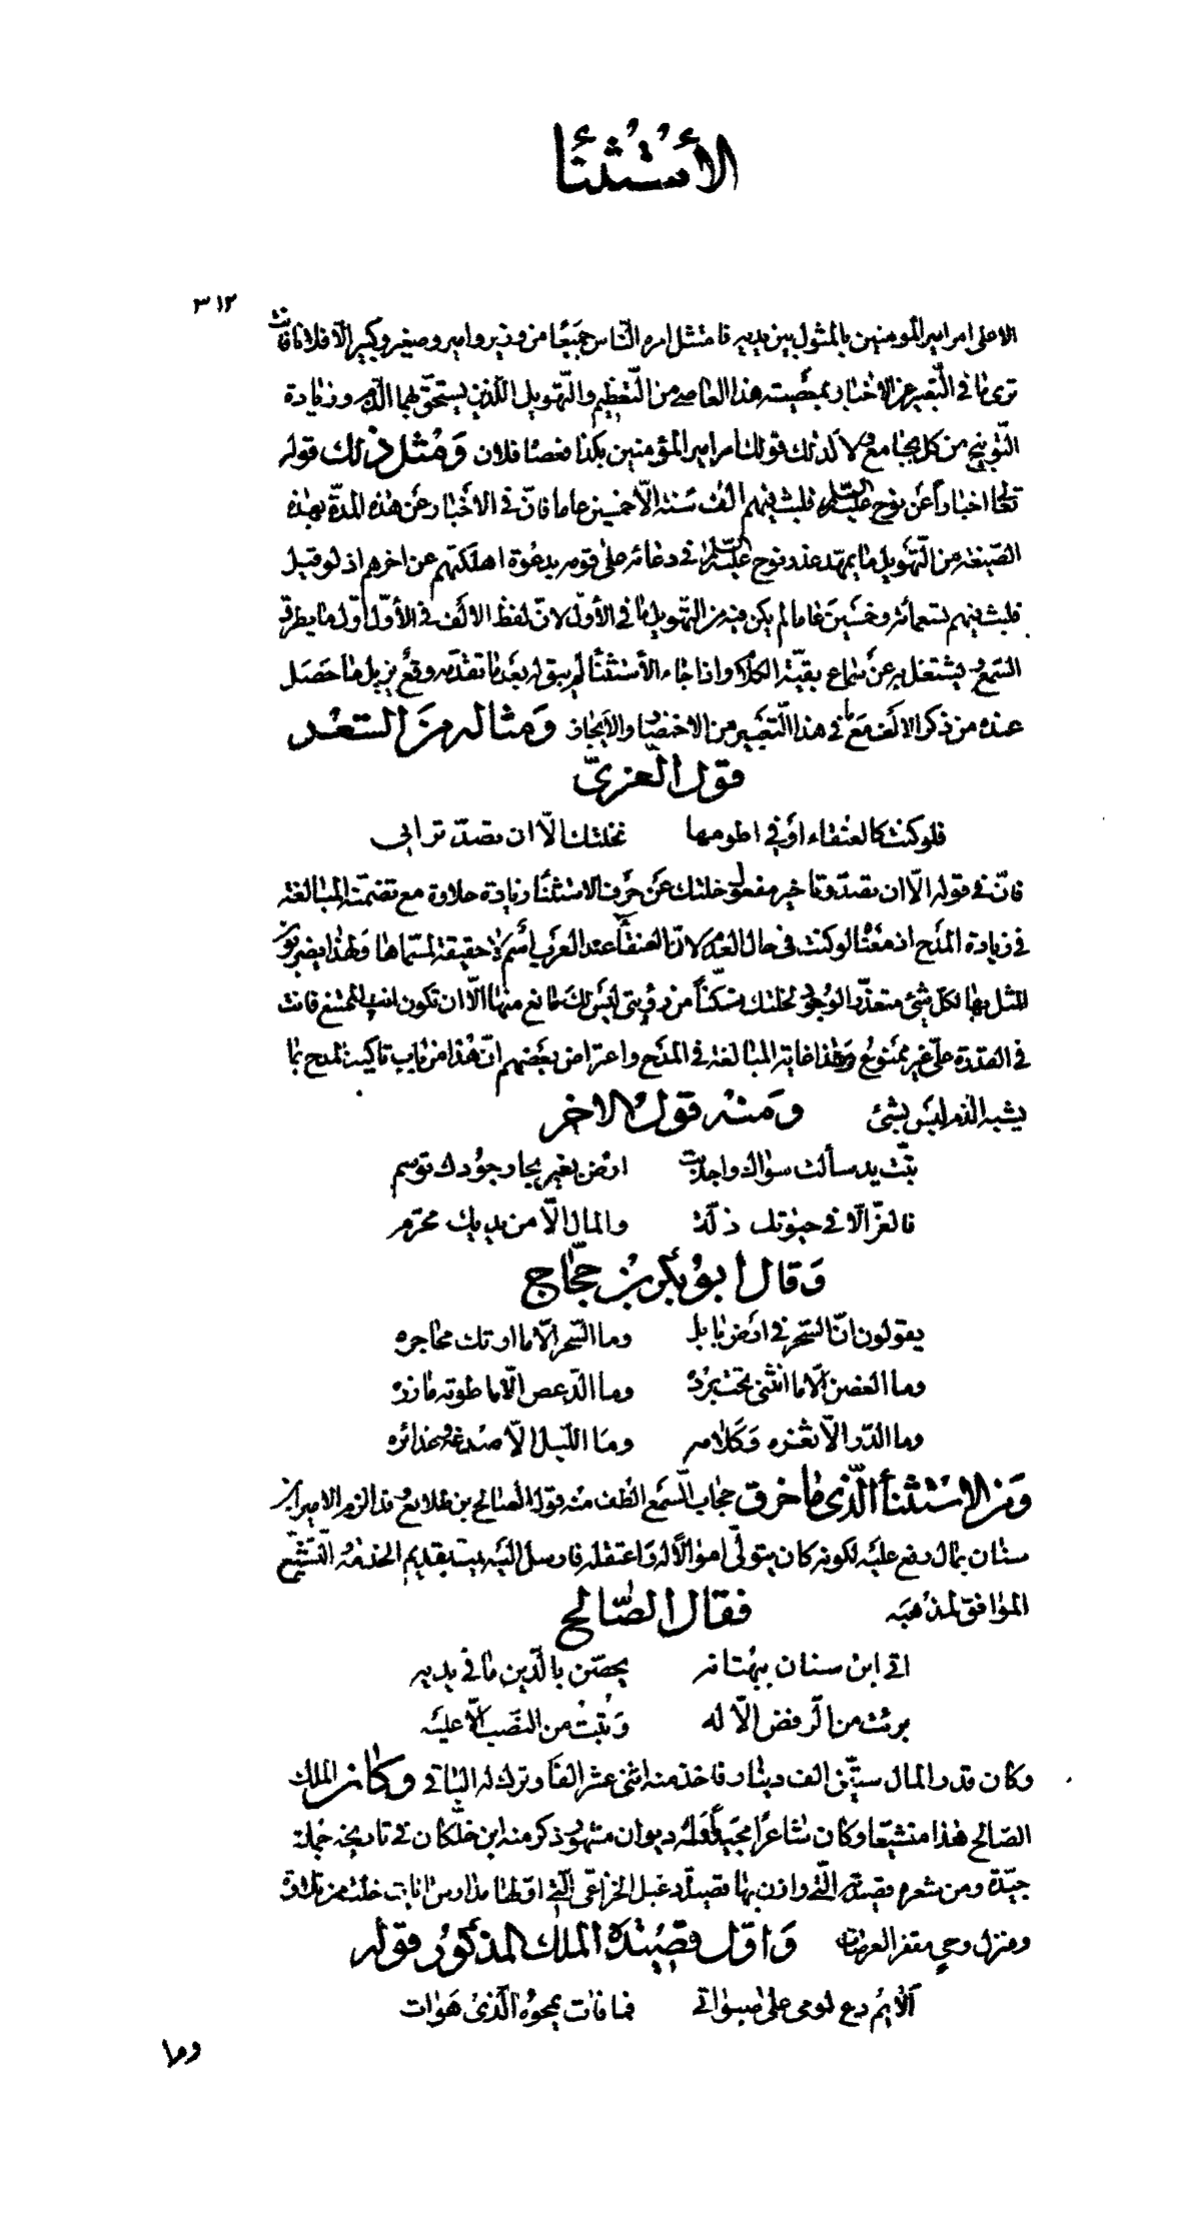 الأستثنا
٣١٢
الاعلى امر امير المؤمنين بالمثول بين يديه فامتثل امره الناس جميعا من وزير وامير وصغير وكبير الّا فلانا فانت
ترى ما في التعبير عن الاخبار بمعصيته هذا العاصى من التعظيم والتهويل اللذين يستحق بهما الذم وزيادة
التوبيخ من كل مجامع ولا كذلك قولك امر امير المؤمنين بكذا فعصا فلان ومثل ذلك قوله
تعالى اخبارا عن نوح عليه السلام فلبث فيهم الف سنة الّا خمسين عاما فانّ في الاخبار عن هذه المدّة بهذه
الصيغة من التهويل ما يمهد عذر نوح عليه السلام في دعائه على قومه بدعوة اهلكتهم عن اخرهم اذ لو قيل
فلبث فيهم تسعمائة وخمسين عاما لم يكن فيه من التهويل ما في الأول لانّ لفظ الالف في الأول اول ما يطرق
السمع فيشتغل به عن سماع بقية الكلام واذا جاء الأستثنا لم يبق له بعد ما تقدمه وقع يزيل ما حصل
عنده من ذكر الالف مع ما في هذا التعبير من الاختصار والايجاز ومثاله من الشعر
قول النميرى
فلو كنت كالعنقاء او في اطومها لخلتك الّا ان تصدّ ترابى
فانّ في قوله الّا ان تصدّ وتاخير مفعولى خلتك عن حرف الاستثنا زيادة حلاوة مع تضمنه المبالغة
في زيادة المدح اذ معناه لو كنت في حال العدم لانّ العنقا عند العرب اسم لا حقيقة لمسماها ولهذا يضربون
المثل بها لكل شئ متعذر الوجود لخلتك متمكنا من رؤيتى ليس لك مانع منها الّا ان تكون انت الممتنع فانت
في القدرة علىّ غير ممنوع وهذا غاية المبالغة في المدح واعتراض بعضهم انّ هذا من باب تاكيد المدح بما
يشبه الذم ليس بشئ ومنه قول الاخر
تبّت يد سألت سواك واجدبت ارض بغير بحار جودك توسم
فالعزّ الّا في حيوتك ذلّة والمال الّا من يديك محرّم
وقال ابو بكر بن حجاج
يقولون انّ السحر في ارض بابل وما السحر الّا ما ارتك محاجره
وما الغصن الّا ما انثنى تحت برده وما الدعص الّا ما طوته مازره
وما الدرّ الّا ثغره وكلامه وما الليل الّا صدغه وغدائره
ومن الاستثنأ الذى ما خرق حجاب السمع الطف منه قول الصالح بن طلايع وقد الزم الامير ابن
سنان بمال رفع عليه لكونه كان يتولّى امواله واعتقله فارسل اليه يمت بقديم الخدمة والتشيّع
الموافق لمذهبه فقال الصّالح
اتى ابن سنان ببهتانه يحصّن بالدين ما في يديه
برئت من الرفض الّا له وتبت من النصب الّا عليه
وكان قدر المال ستّين الف دينار فاخذ منه اثنى عشر الفا وترك له الباقى وكان الملك
الصّالح هذا متشيّعا وكان شاعرا مجيدا وله ديوان مشهور ذكر منه ابن خلكان في تاريخه جملة
جيّدة ومن شعره قصيدته التى وازن بها قصيدة دعبل الخزاعى التى اوّلها مدارس ايات خلت من تلاوة
ومنزل وحى مقفر العرصات واوّل قصيدة الملك المذكور قوله
ألايم دع لومى على صبواتى فما فات يمحوه الّذى هوات
وما